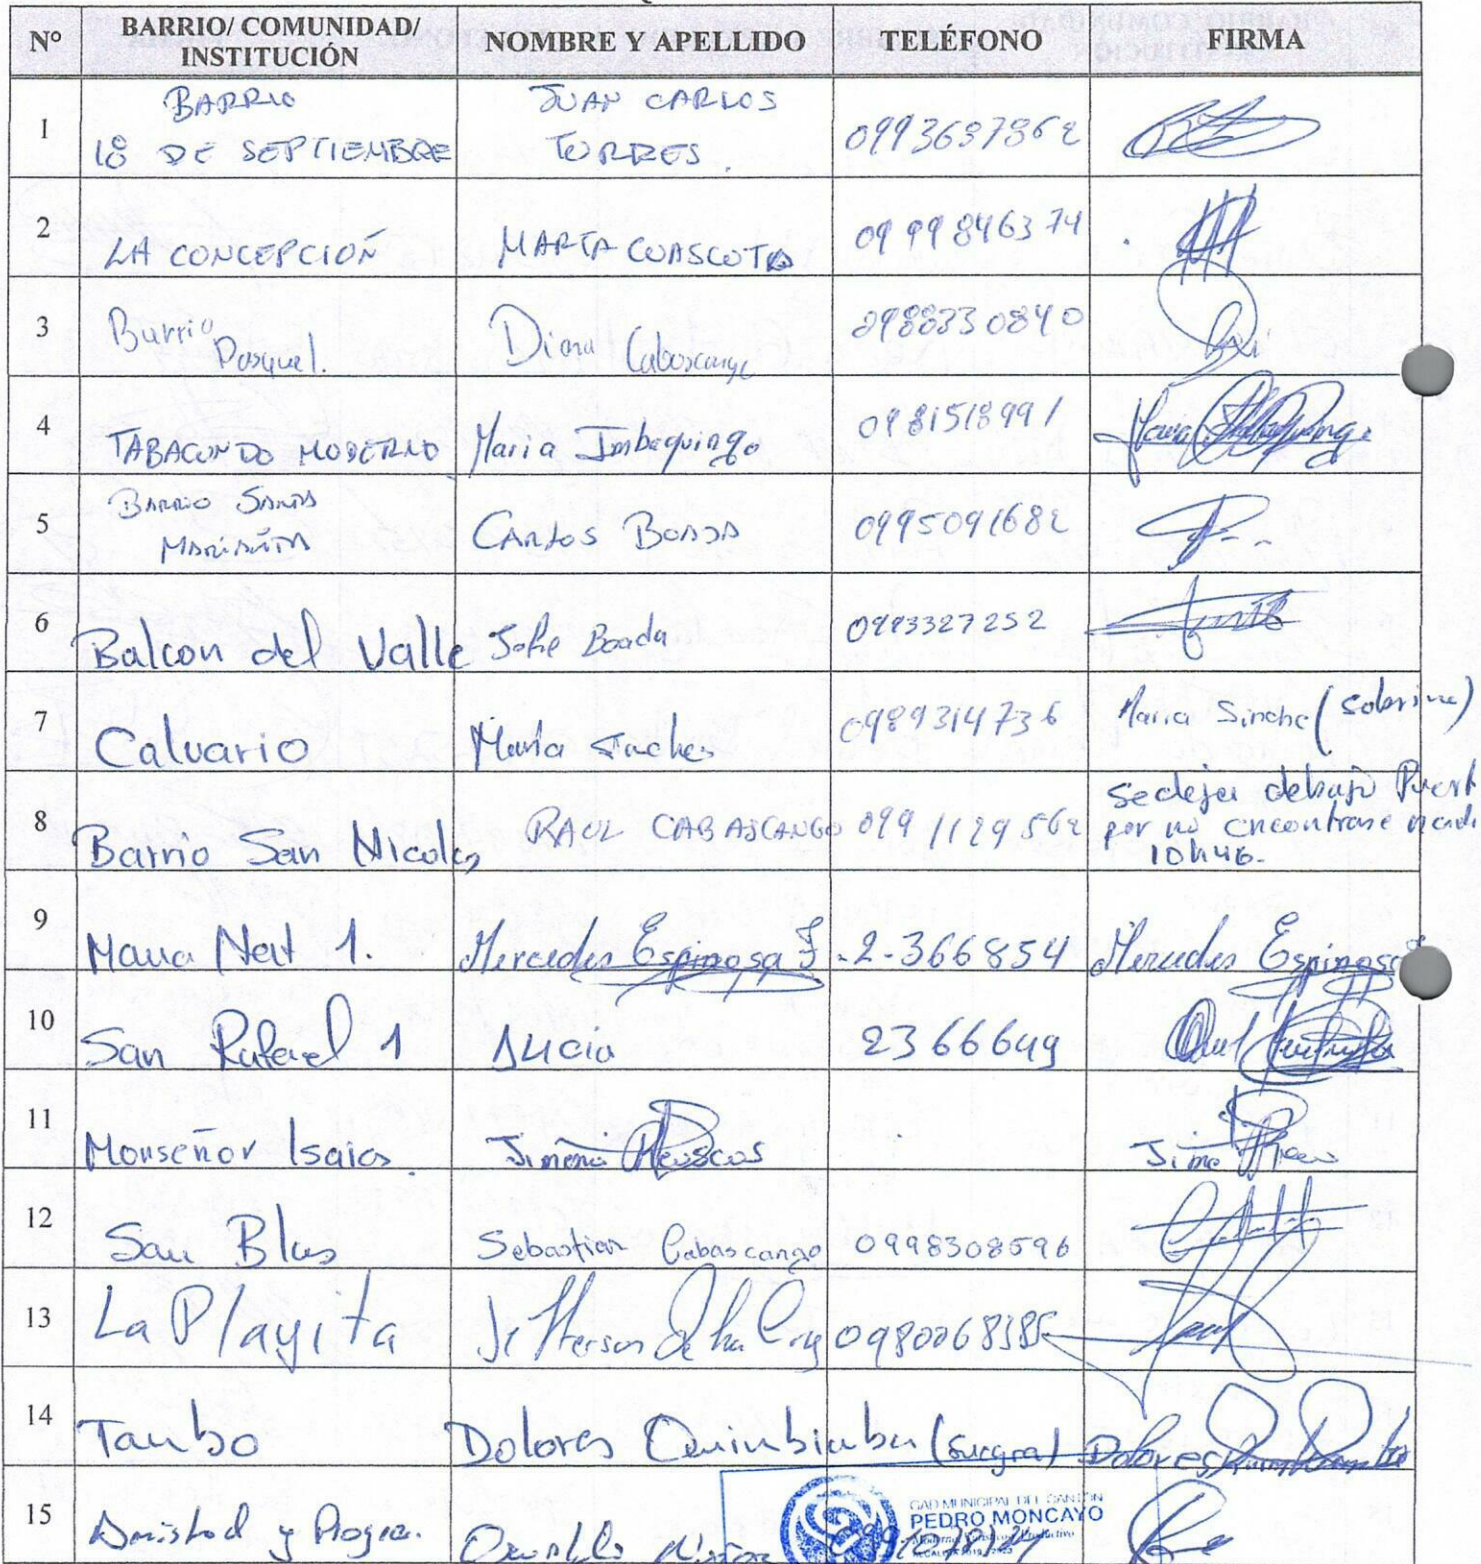 N° BARRIO/ COMUNIDAD/ INSTITUCIÓN NOMBRE Y APELLIDO TELÉFONO FIRMA
1 BARRIO 18 DE SEPTIEMBRE JUAN CARLOS TORRES
2 LA CONCEPCIÓN MARTA CUASCOTA 0999846374
3 Barrio Pasquel. Diana Cabascango 0988330840
4 TABACUNDO MODERNO Maria Imbaquingo 0981518991
5 BARRIO SANTA MARIANITA CARLOS BOADA 0995091682
6 Balcon del Valle Sofie Boada 0993327252
7 Calvario Maria 0989314736 Maria Sinche (sobrina)
8 Barrio San Nicolas RAUL CABASCANGO 0991129562 se deja debajo Puert
por no encontrarse nadi
10h46.
9 Natt 1. Mercedes Espinosa J. 2-366854 Mercedes Espinosa
10 San Rafael 1 Alicia 2366649
11 Monseñor Isaias. Jimena
12 San Blas Sebastian Cabascango 0998308596
13 La Playita Jefferson De la Cruz
14 Tambo Dolores Quimbiamba (suegra) Dolores
15 Amistad y Progre. Oswaldo
GAD MUNICIPAL DEL CANTÓN
PEDRO MONCAYO